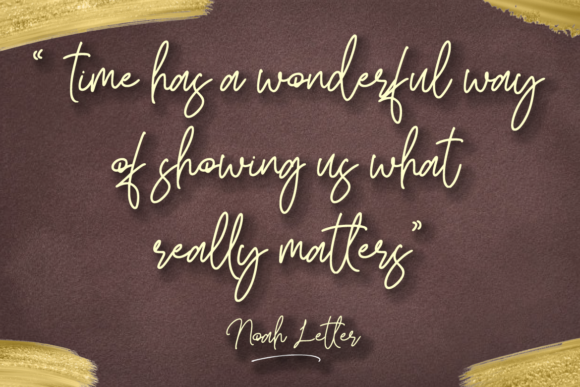 “ time has a wonderful way
of showing us what
really matters”
Noah Letter